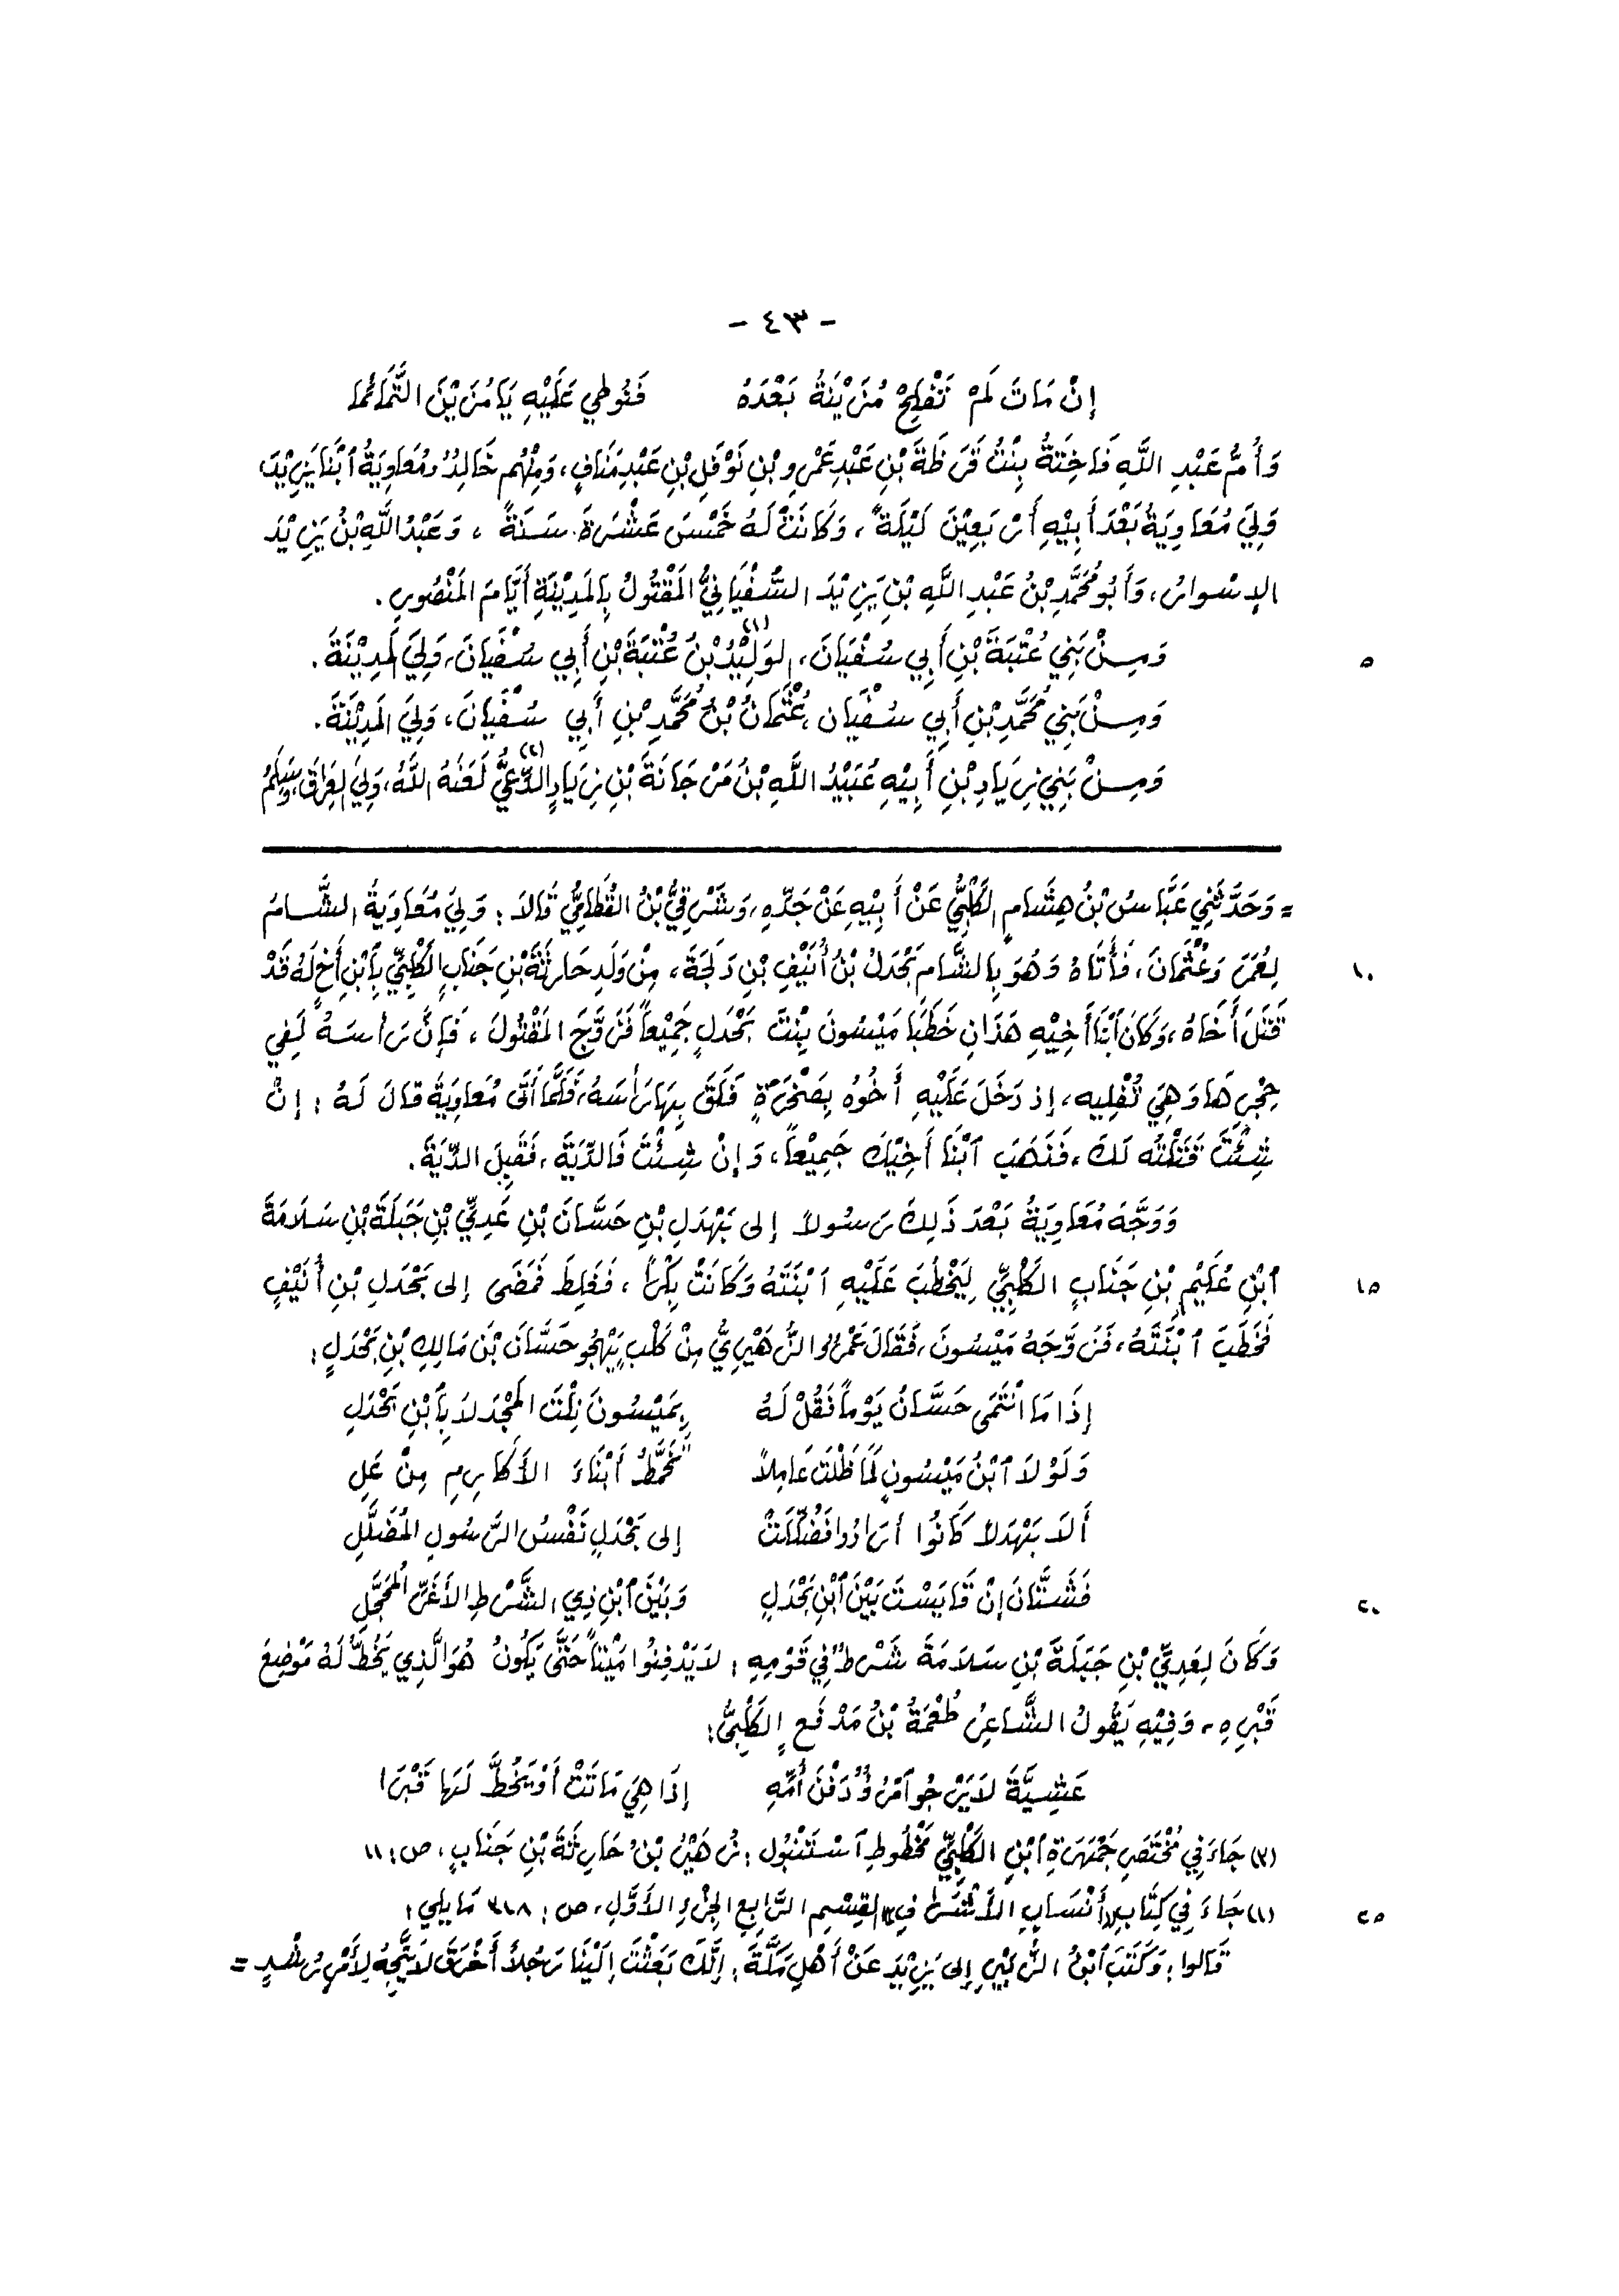 - ٤٣ -
إِنْ مَاتَ لَمْ تَفْلِحْ مُزَيْنَةُ بَعْدَهُ فَنُوطِي عَلَيْهِ يَا مُزَيْنَ التَّمَائِمَا
وَأُمُّ عَبْدِ اللَّهِ فَاخِتَةُ بِنْتُ قَرَظَةَ بْنِ عَبْدِ عَمْرِو بْنِ نَوْفَلِ بْنِ عَبْدِ مَنَافٍ، وَمِنْهُم خَالِدُ ومُعَاوِيَةُ ٱبْنَا يَزِيْدَ،
وَلِيَ مُعَاوِيَةُ بَعْدَ أَبِيْهِ أَرْبَعِيْنَ لَيْلَةً، وَكَانَتْ لَهُ خَمْسَ عَشْرَةَ سَنَةً، وَعَبْدُ اللَّهِ بْنُ يَزِيْدَ
الإِسْوارُ، وَأَبُو مُحَمَّدِ بْنُ عَبْدِ اللَّهِ بْنِ يَزِيْدَ السُّفْيَانِيُّ المَقْتُولُ بِالمَدِيْنَةِ أَيَّامَ المَنْصُورِ.
٥ وَمِنْ بَنِي عُتْبَةَ بْنِ أَبِي سُفْيَانَ، الوَلِيْدُ (١) بْنُ عُتْبَةَ بْنِ أَبِي سُفْيَانَ، وَلِيَ المَدِيْنَةَ.
وَمِنْ بَنِي مُحَمَّدِ بْنِ أَبِي سُفْيَان، عُثْمَانُ بْنُ مُحَمَّدِ بْنِ أَبِي سُفْيَانَ، وَلِيَ المَدِيْنَةَ.
وَمِنْ بَنِي زِيَادِ بْنِ أَبِيْهِ عُبَيْدُ اللَّهِ بْنُ مَرْجَانَةَ بْنِ زِيَادٍ الدَّعِيُّ (٢) لَعَنَهُ اللَّهُ، وَلِيَ العِرَاقَ، وَسَلْمُ
= وَحَدَّثَنِي عَبَّاسُ بْنُ هِشَامٍ الكَلْبِيُّ عَنْ أَبِيْهِ عَنْ جَدِّهِ، وَشَرْقِيُّ بْنُ القُطَامِيِّ قَالَا: وَلِيَ مُعَاوِيَةُ الشَّامَ
١٠ لِعُمَرَ وَعُثْمَانَ، فَأَتَاهُ وَهُوَ بِالشَّامِ بَحْدَلُ بْنُ أُنَيْفِ بْنِ دَلَجَةَ، مِنْ وَلَدِ حَارِثَةَ بْنِ جَنَابٍ الكَلْبِيِّ بِٱبْنِ أَخٍ لَهُ قَدْ
قَتَلَ أَخَاهُ، وَكَانَ ٱبْنَا أَخِيْهِ هَذَانِ خَطَبَا مَيْسُونَ بِنْتَ بَحْدَلٍ جَمِيْعاً فَزَوَّجَ المَقْتُولَ، فَإِنَّ رَأسَهُ لَفِي
حِجْرِهَا وَهِيَ تُفْلِيه، إذ دَخَلَ عَلَيْهِ أَخُوهُ بِصَخْرَةٍ فَلَقَ بِهَا رَأْسَهُ، فَلَمَّا أَتَى مُعَاوِيَةَ قَالَ لَهُ: إنْ
شِئْتَ قَتَلْتُه لَكَ، فَذَهَبَ ٱبْنَا أَخِيْكَ جَمِيْعاً، وَإنْ شِئْتَ فَالدِّيَةَ، فَقَبِلَ الدِّيَةَ.
وَوَجَّهَ مُعَاوِيَةُ بَعْدَ ذَلِكَ رَسُولاً إلى بَهْدَلِ بْنِ حَسَّانَ بْنِ عَدِيِّ بْنِ جَبَلَةَ بْنِ سَلَامَةَ
١٥ ٱبْنِ عُلَيْمِ بْنِ جَنَابٍ الكَلْبِيِّ لِيَخْطُبَ عَلَيْهِ ٱبْنَتَهُ وَكَانَتْ بِكْراً، فَغَلِطَ فَمَضَى إلى بَحْدَلِ بْنِ أُنَيْفٍ
فَخَطَبَ ٱبْنَتَهُ، فَزَوَّجَهُ مَيْسُونَ، فَقَالَ عَمْرُو الزُّهَيْرِيُّ مِنْ كَلْبٍ يَهْجُو حَسَّانَ بْنَ مَالِكِ بْنِ بَحْدَلٍ:
إذَا مَا انْتَمَى حَسَّانُ يَوْماً فَقُلْ لَهُ بِمَيْسُونَ نِلْتَ المَجْدَ لَا بِٱبْنِ بَحْدَلِ
وَلَوْلَا ٱبْنُ مَيْسُونٍ لَمَا ظَلْتَ عَامِلاً تَخَمَّطُ أَبْنَاءَ الأَكَارِمِ مِنْ عَلِ
أَلَا بَهْدَلاً كَانُوا أرَادُوا فَضُلِّلَتْ إلى بَحْدَلٍ نَفْسُ الرَّسُولِ المُضَلَّلِ
٢٠ فَشَتَّانَ إنْ قَايَسْتَ بَيْنَ ٱبْنِ بَحْدَلٍ وَبَيْنَ ٱبْنِ ذِي الشَّرْطِ الأَغَرِّ المُحَجَّلِ
وَكَانَ لِعَدِيِّ بْنِ جَبَلَةَ بْنِ سَلَامَةَ شَرْطٌ فِي قَوْمِهِ: لَا يَدْفِنُوا مَيْتاً حَتَّى يَكُونَ هُوَ الَّذِي يَخُطُّ لَهُ مَوْضِعَ
قَبْرِهِ، وَفِيْهِ يَقُولُ الشَّاعِرُ طُعْمَةُ بْنُ مَدْفَعٍ الكَلْبِيُّ:
عَشِيَّةَ لَا يَرْجُو ٱمْرُؤٌ دَفْنَ أُمِّهِ إِذَا هِيَ مَاتَتْ أَوْ يَخُطَّ لَهَا قَبْرَا
(٣) جَاءَ فِي مُخْتَصَرِ جَمْهَرَةِ ٱبْنِ الكَلْبِيِّ مَخْطُوطِ ٱسْتَنْبُول: زُهَيْرُ بْنُ حَارِثَةَ بْنِ جَنَابٍ، ص: ١١
٢٥ (١) جَاءَ فِي كِتَابِ أَنْسَابِ الأَشْرَافِ القِسْمِ الرَّابِعِ الجُزْءِ الأَوَّلِ، ص: ٣١٨ مَا يلي:
قَالوا: وَكَتَبَ ٱبْنُ الزُّبَيْرِ إلى يَزِيْدَ عَنْ أَهْلِ مَكَّةَ: إنَّكَ بَعَثْتَ إلَيْنَا رَجُلاً أَخْرَقَ لَا يَتَّجِهُ لِأَمْرِ رُشْدٍ =